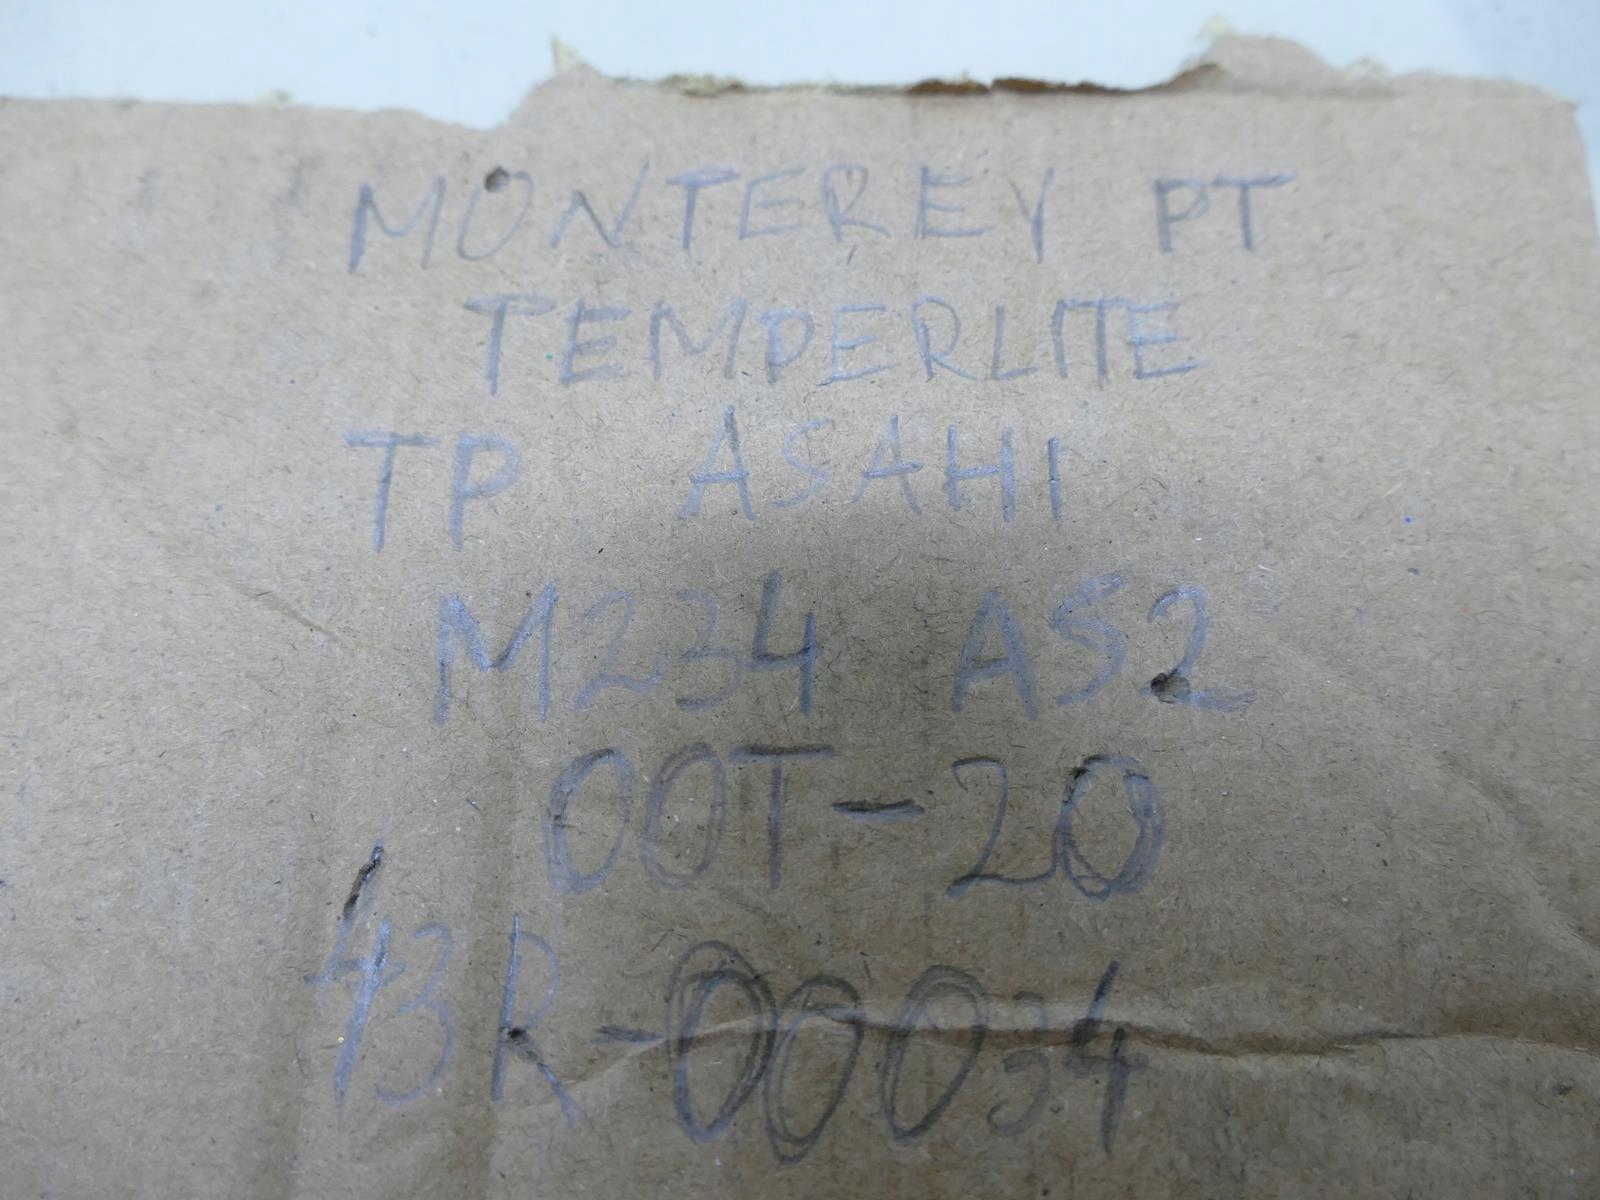 MONTEREY PT
TEMPERLITE
TP ASAHI
M234 AS2
00T-20
43R-00034